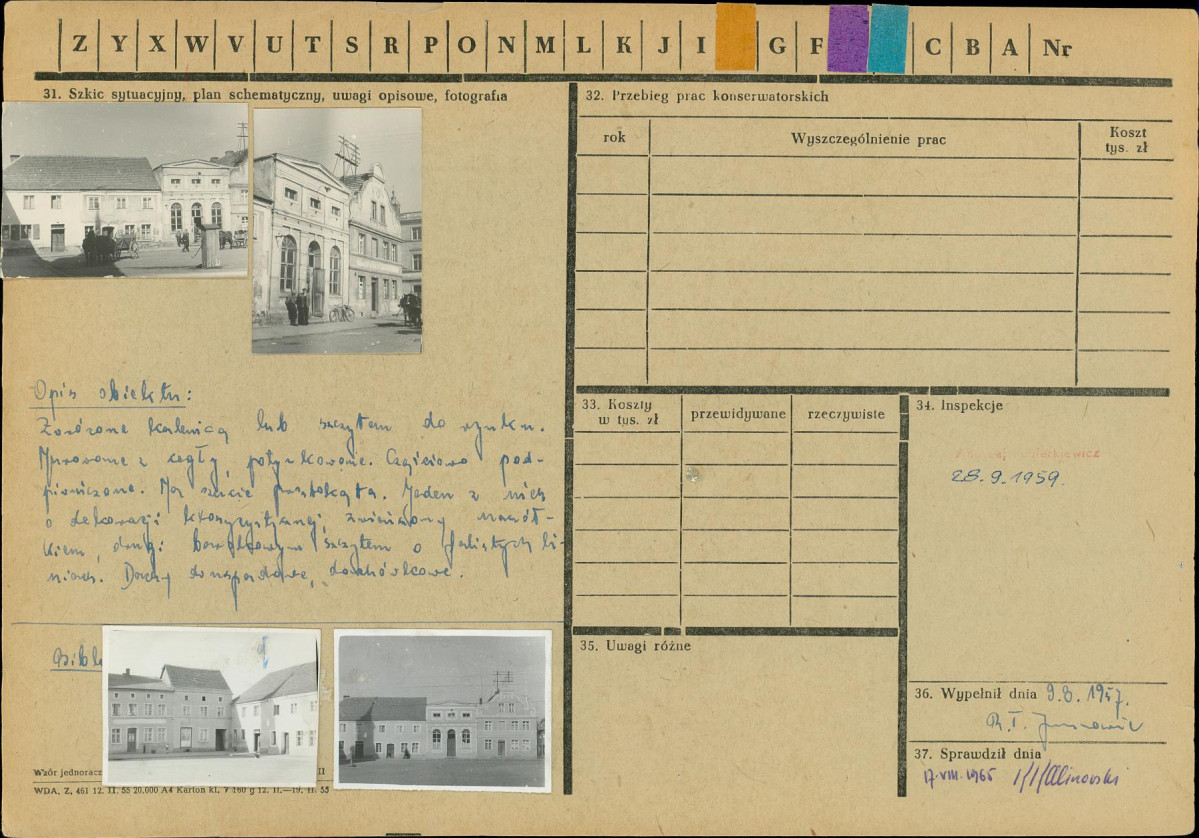 Z Y X W V U T S R P O N M L K J I G F C B A Nr
31. Szkic sytuacyjny, plan schematyczny, uwagi opisowe, fotografia
Opis obiektu:
Zwrócone kalenicą lub szczytem do rynku.
z cegły, potynkowane. Częściowo pod-
piwniczone. Na rzucie prostokąta. Jeden z nich
o dekoracji klasycystycznej, zwieńczony
drugi barokowym szczytem o falistych li-
niach. Dachy dwuspadowe, dachówkowe.
Bibl
Wzór jednoraz II
WDA, Z, 461 12. II. 55 20.000 A4 Karton kl. V 160 g 12. II.—19. II. 55
32. Przebieg prac konserwatorskich
rok Wyszczególnienie prac Koszt
tys. zł
33. Koszty
w tys. zł przewidywane rzeczywiste
34. Inspekcje
28.9.1959.
35. Uwagi różne
36. Wypełnił dnia 9.8.1957.
37. Sprawdził dnia
17.VIII.1965 Kalinowski